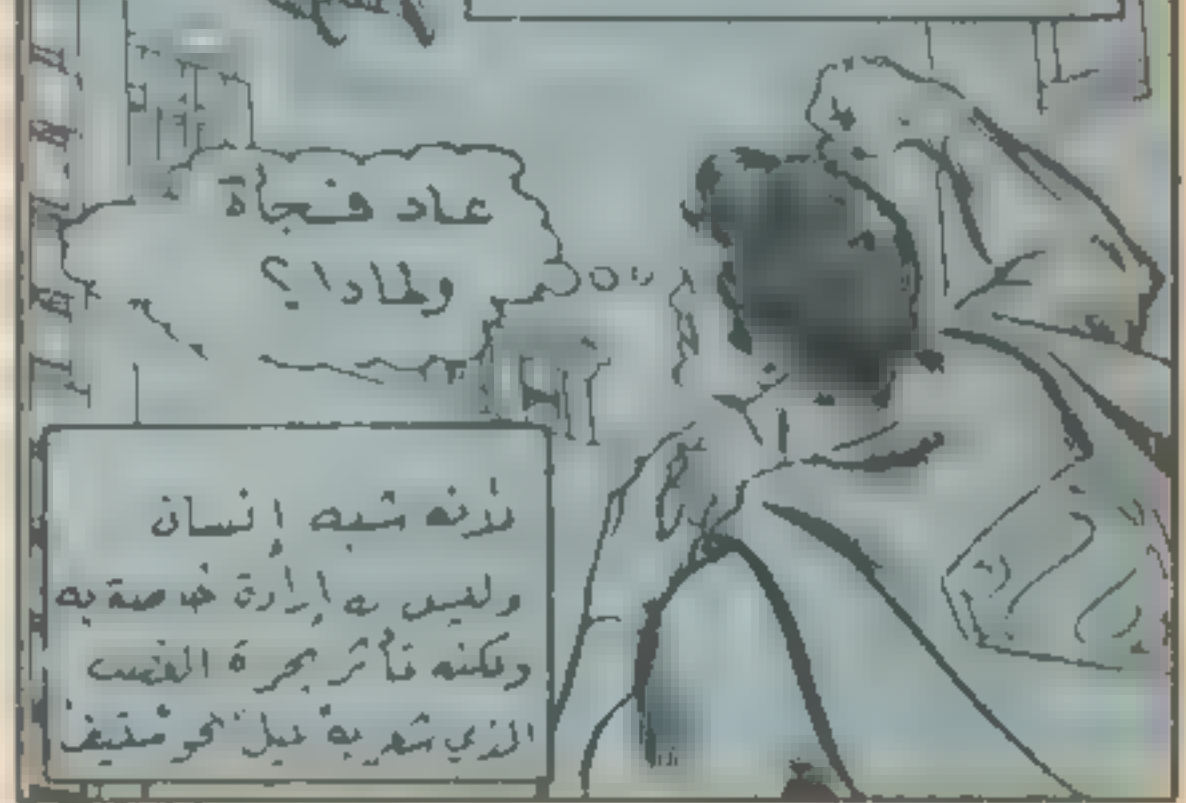 عاد فجأة
ولماذا؟
لأنه شبه إنسان
وليس له إرادة خاصة به
ولكنه تأثر بجرة الغضب
الذي شعر به نيل نحو شقيقه